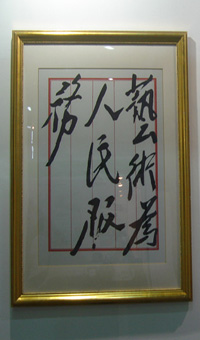 藝術為
人民服
務